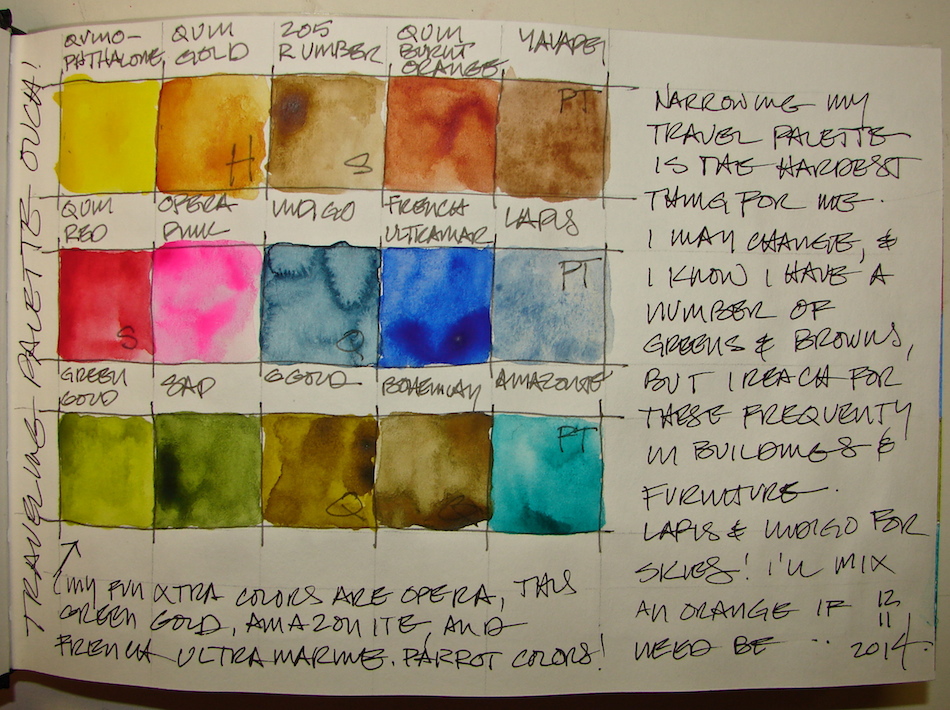 TRAVELING PALETTE OUCH!
QUINO-
PHTHALONE
QUIN
GOLD
205
R UMBER
QUIN
BURNT
ORANGE
YAVAPEI
H
S
PT
QUIN
RED
OPERA
PINK
INDIGO
FRENCH
ULTRAMAR
LAPIS
S
Q
PT
GREEN
GOLD
SAP
G GOLD
BOHEMIAN
AMAZONITE
Q
PT
MY FUN XTRA COLORS ARE OPERA, THIS
GREEN GOLD, AMAZONITE, AND
FRENCH ULTRAMARINE. PARROT COLORS!
NARROWING MY
TRAVEL PALETTE
IS THE HARDEST
THING FOR ME.
I MAY CHANGE, &
I KNOW I HAVE A
NUMBER OF
GREENS & BROWNS,
BUT I REACH FOR
THESE FREQUENTY
IN BUILDINGS &
FURNITURE.
LAPIS & INDIGO FOR
SKIES! I'LL MIX
AN ORANGE IF
NEED BE..
12
11
2014.